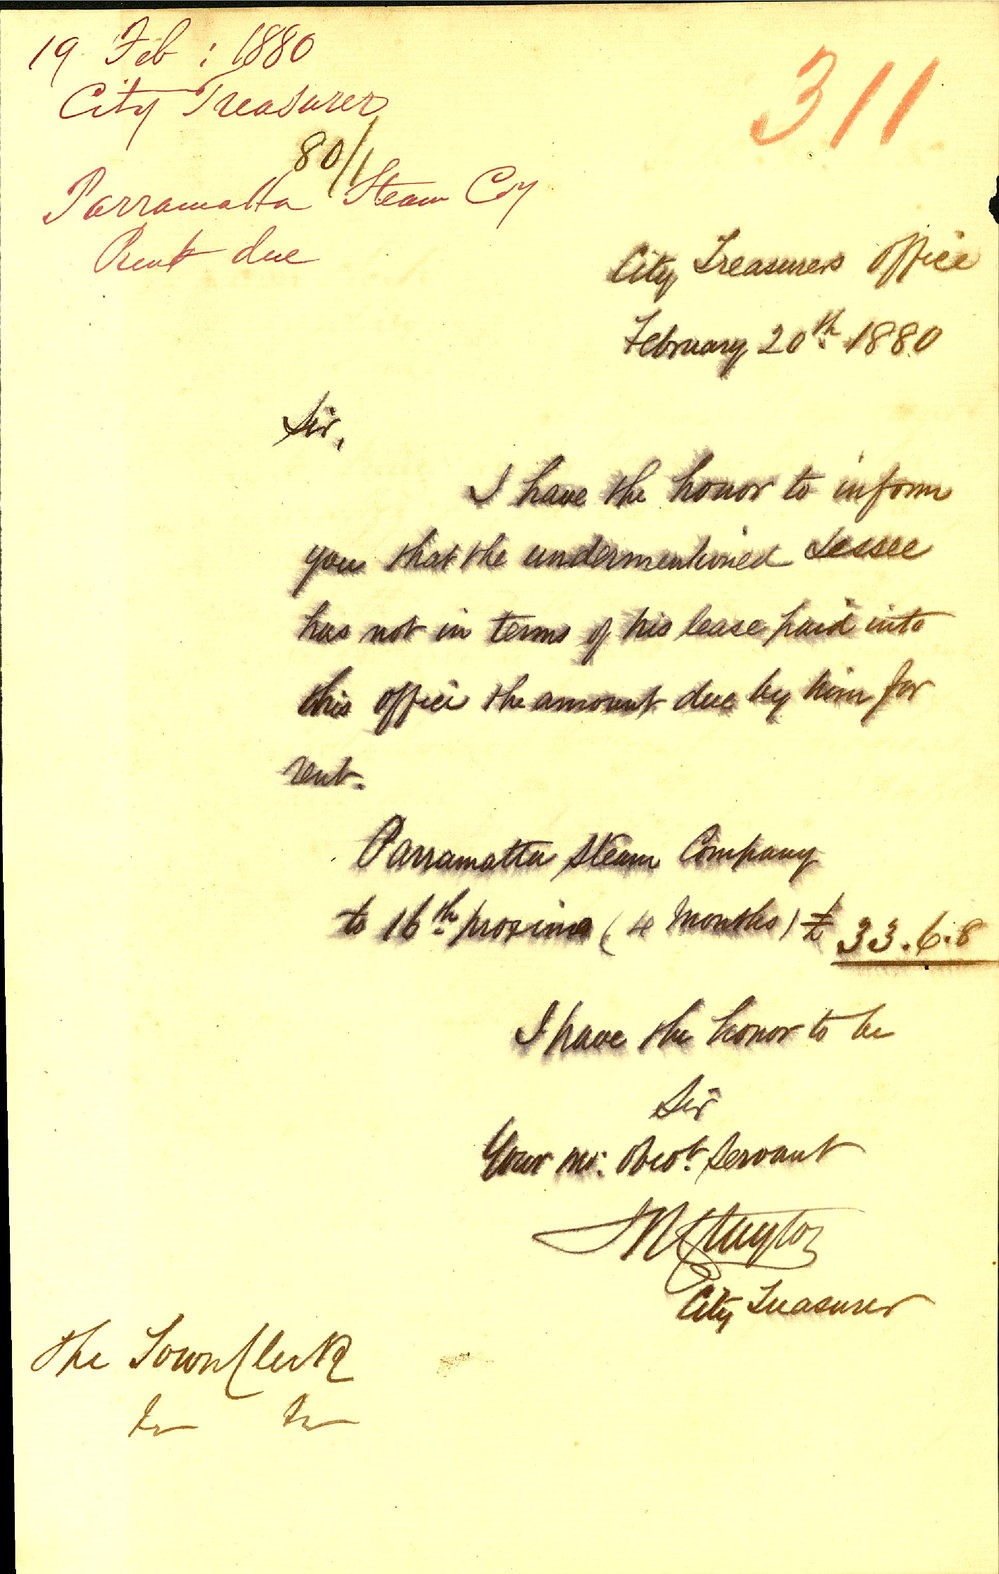 19 Feb : 1880
City Treasurer
80/1
Parramatta Steam Coy
Rent due
311
City Treasurers Office
February 20th 1880
Sir,
I have the honor to inform
you that the undermentioned Lessee
has not in terms of his lease paid into
this office the amount due by him for
rent.
Parramatta Steam Company
to 16th proximo (4 Months) £ 33.6.8
I have the honor to be
Sir
Your mo. Obedt. Servant
City Treasurer
The Town Clerk